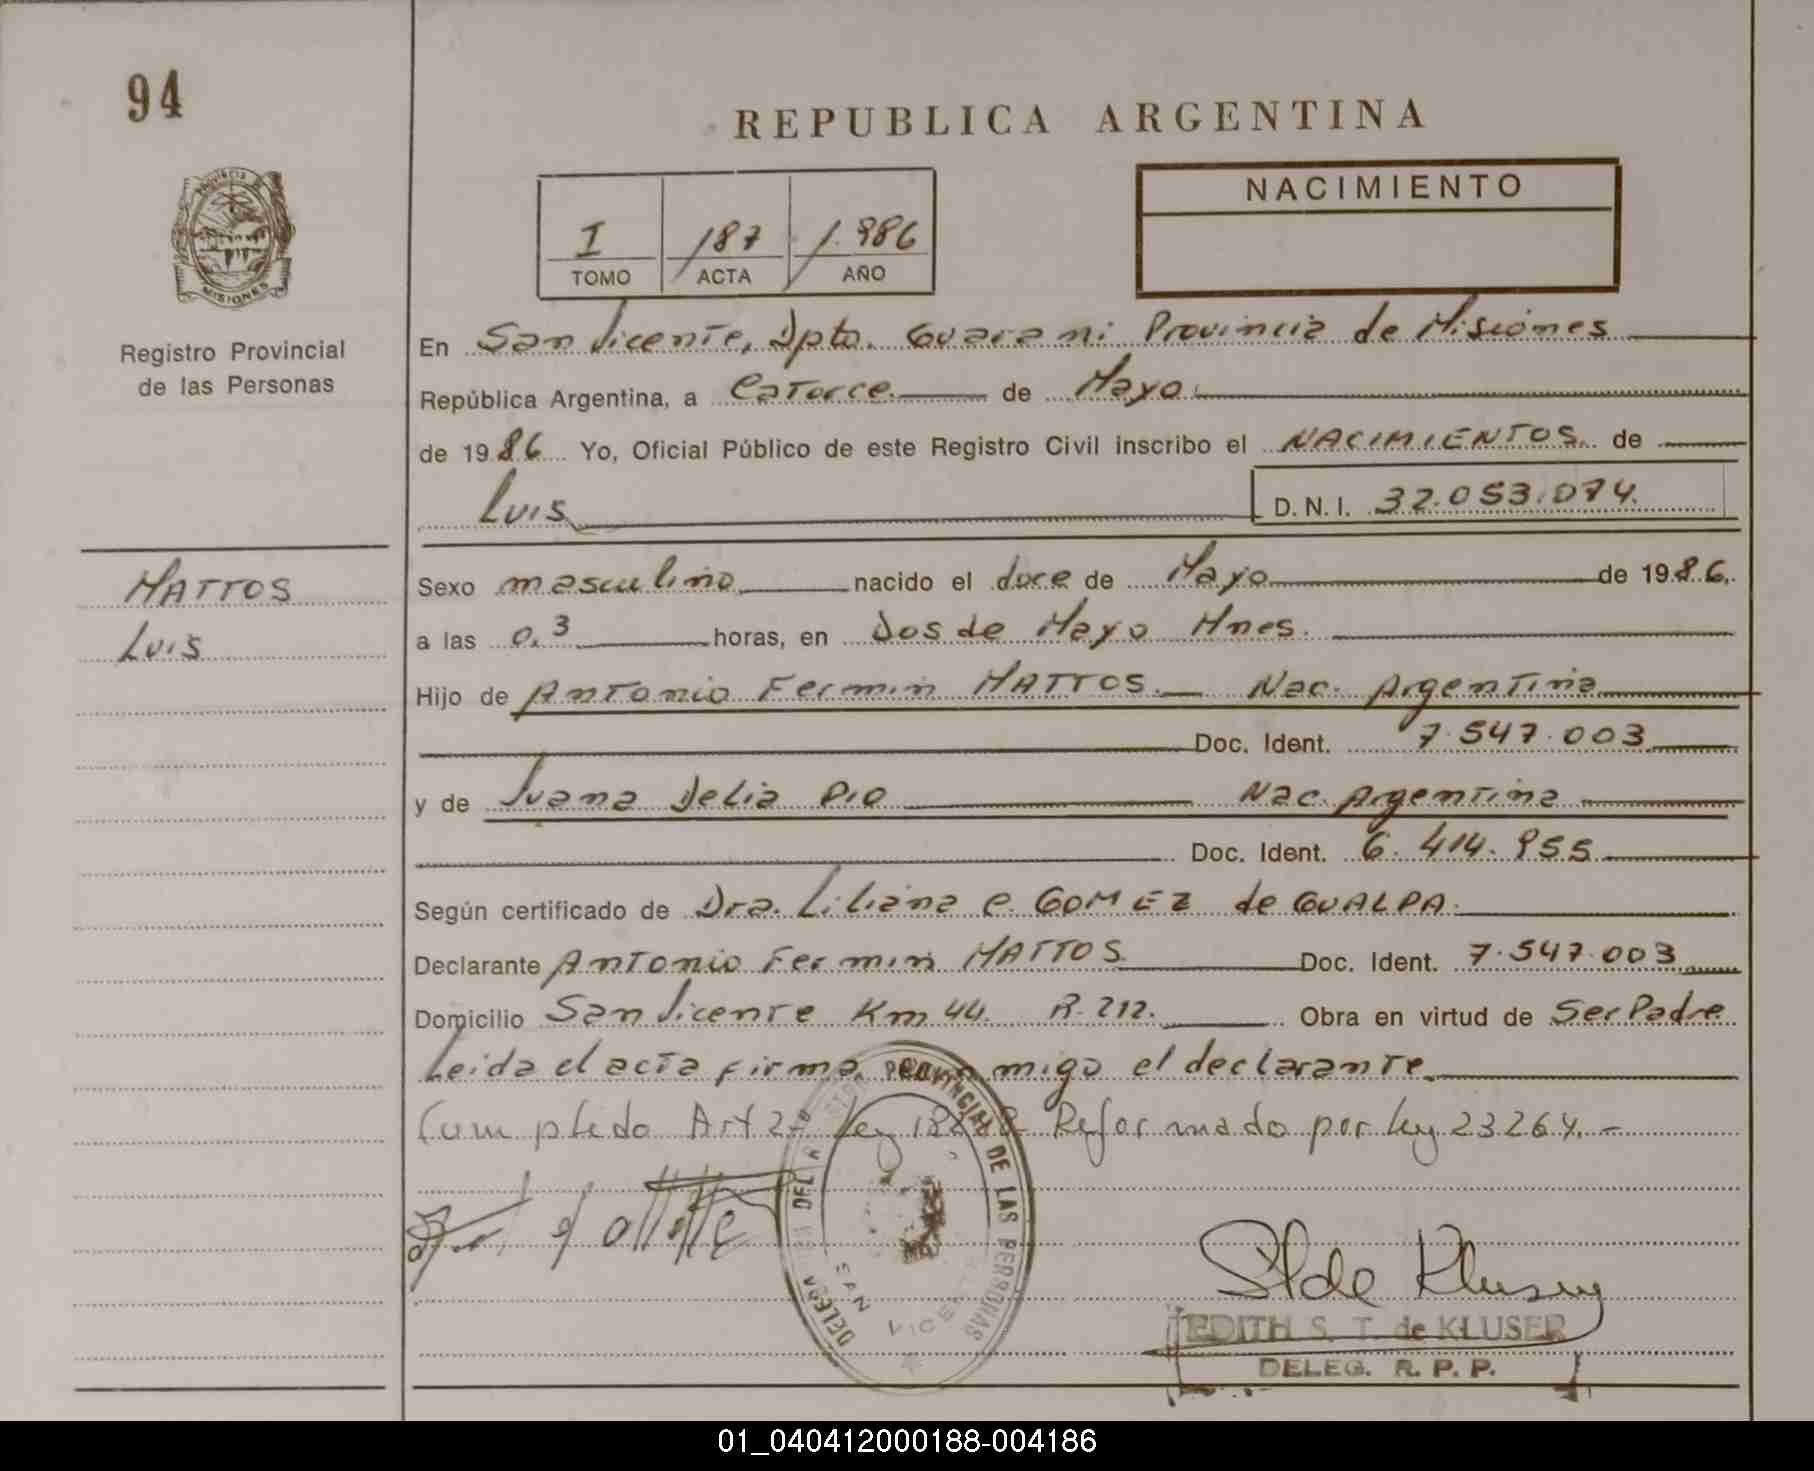 94
REPUBLICA ARGENTINA
PROVINCIA DE
MISIONES
Registro Provincial
de las Personas
I 187 1.986
TOMO ACTA AÑO
NACIMIENTO
En San Vicente, Dpto. Guarani Provincia de Misiones
República Argentina, a Catorce. de Mayo.
de 1986 Yo, Oficial Público de este Registro Civil inscribo el NACIMIENTOS. de
Luis D. N. I. 32.053.074.
MATTOS
Luis
Sexo masculino nacido el doce de Mayo de 1986.
a las 0,3 horas, en Dos de Mayo Mnes.
Hijo de Antonio Fermin MATTOS. Nac. Argentina
Doc. Ident. 7.547.003
y de Juana Delia PIO Nac. Argentina
Doc. Ident. 6.414.955
Según certificado de Dra. Liliana e. GOMEZ de GUALPA.
Declarante Antonio Fermin MATTOS Doc. Ident. 7.547.003
Domicilio San Vicente Km 44. R. 212. Obra en virtud de Ser Padre
Leida el acta firma migo el declarante
Cumplido Art 2º Ley Reformado por ley 23264. -
PROVINCIAL DE LAS PERSONAS
SAN VICENTE
EDITH S. T. de KLUSER
DELEG. R. P. P.
01_040412000188-004186